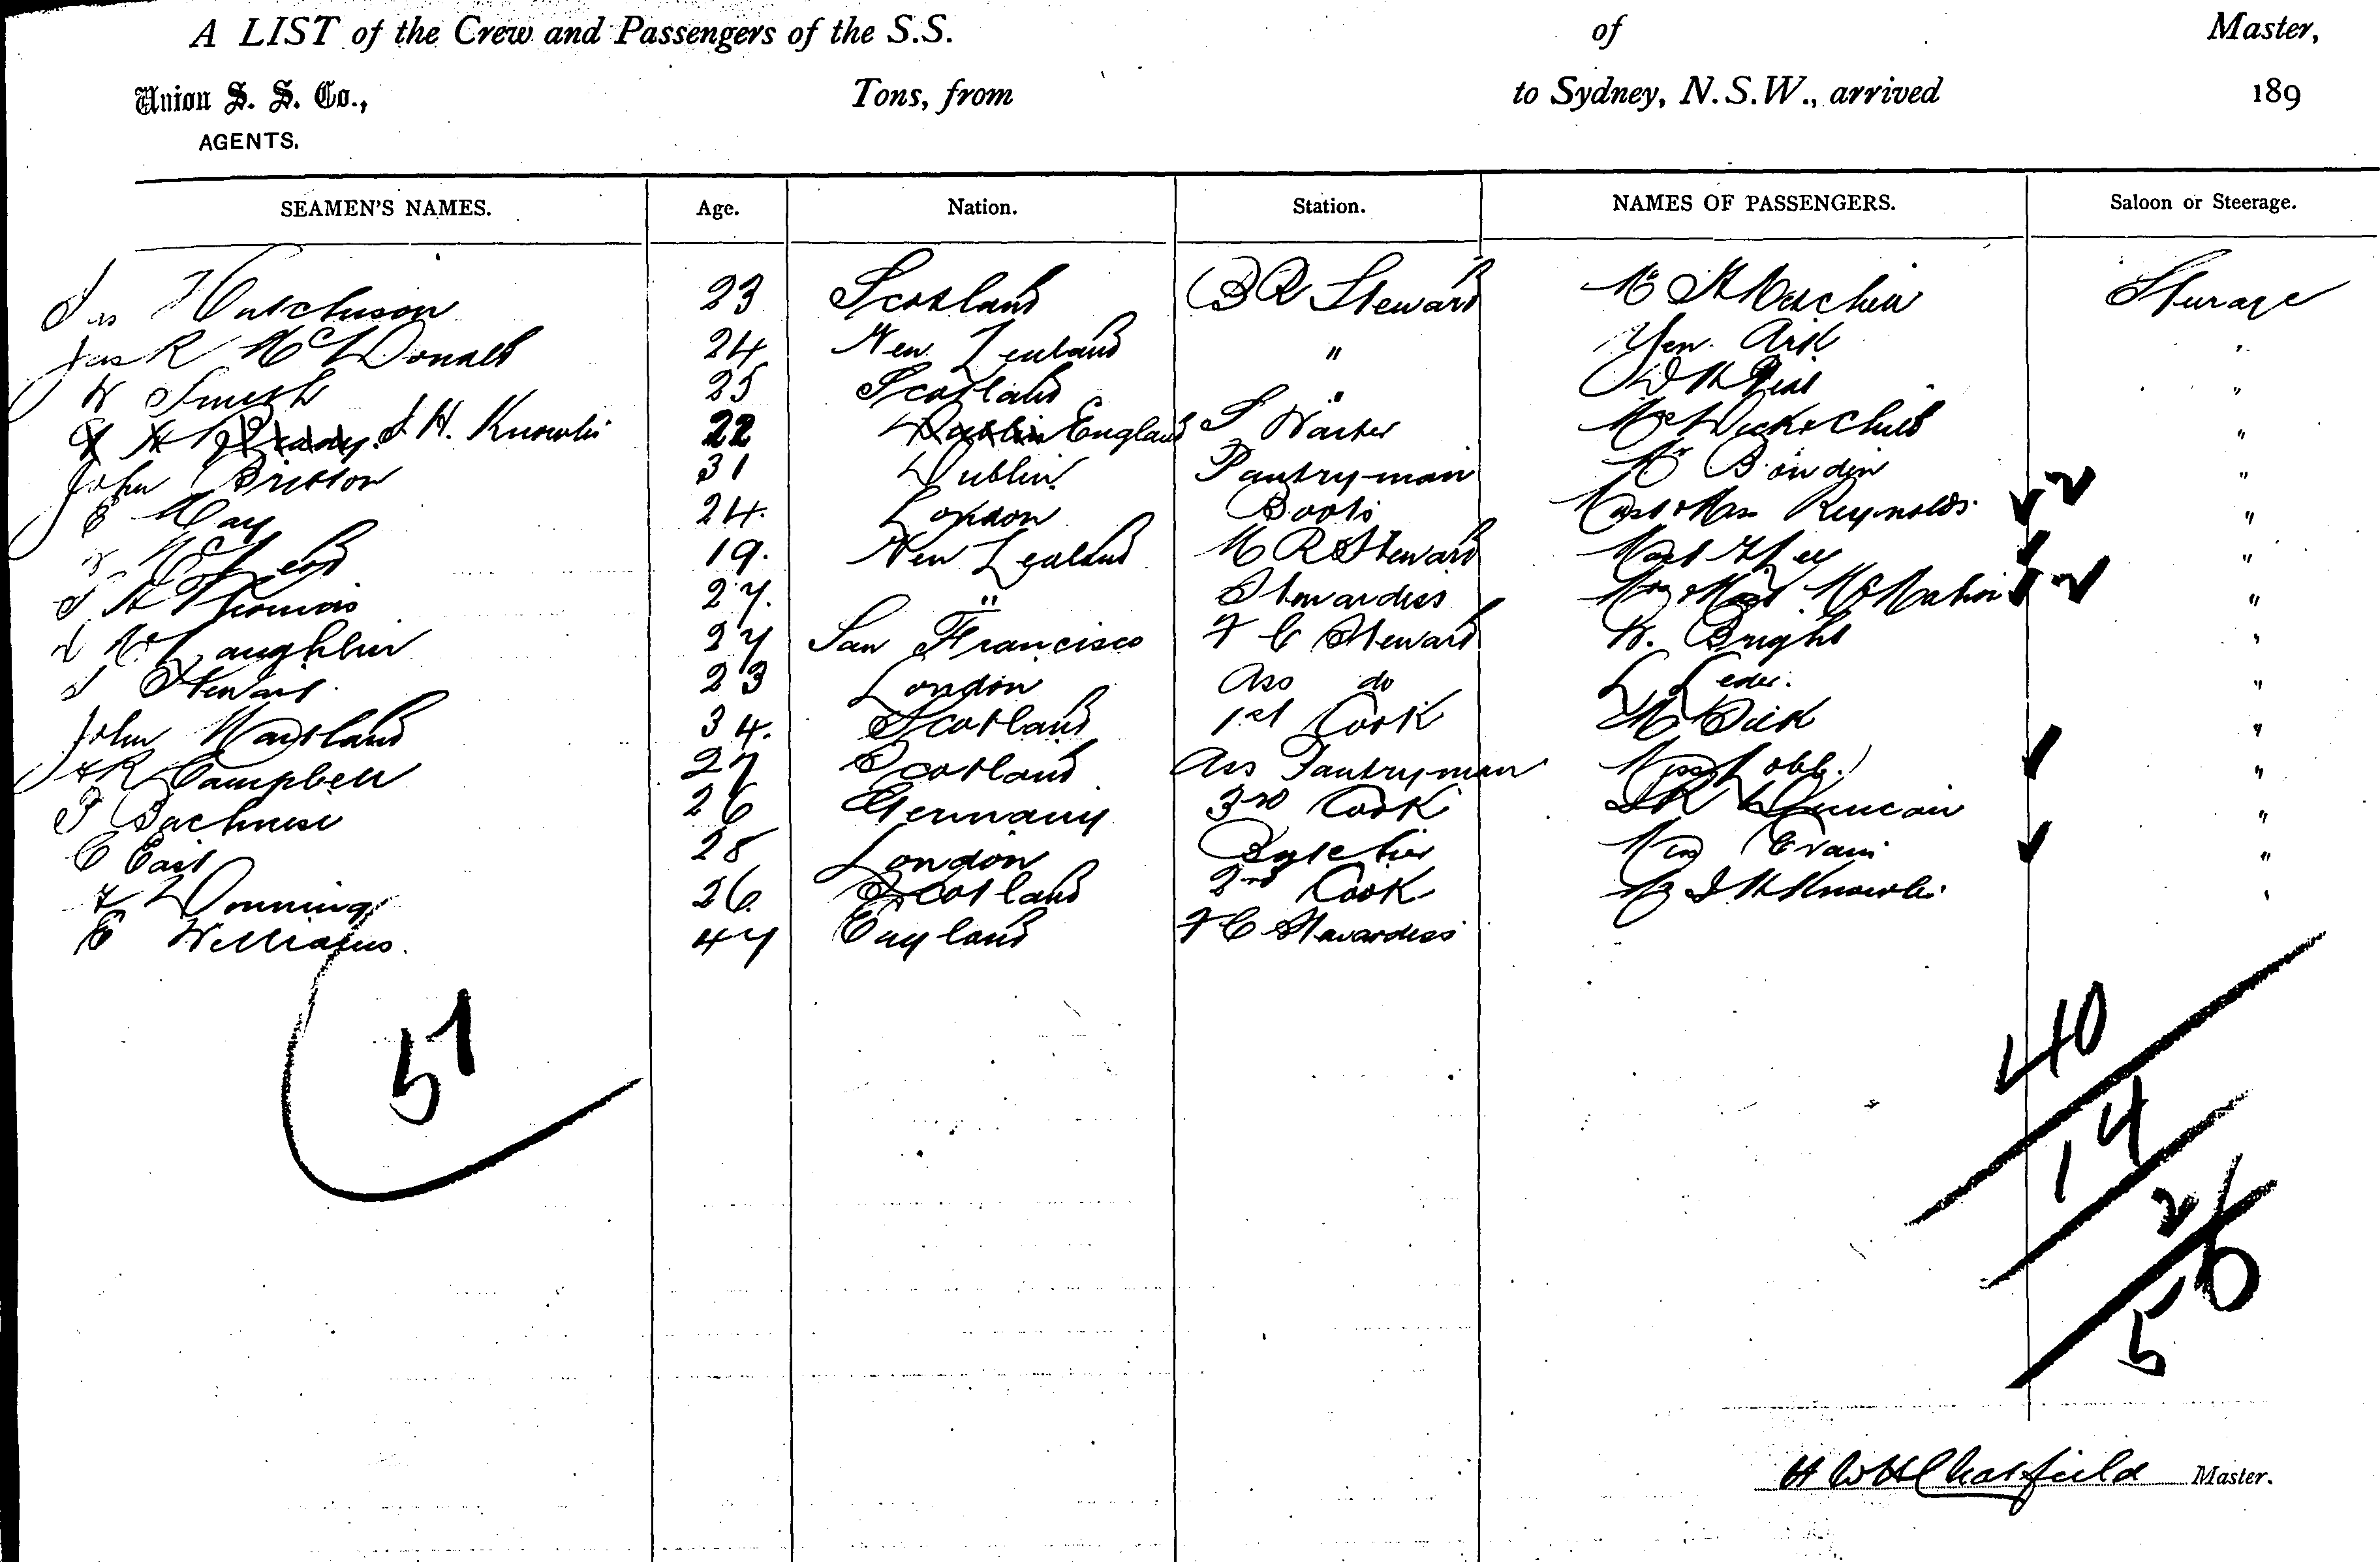 A LIST of the Crew and Passengers of the S.S. of Master,
Union S. S. Co., Tons, from to Sydney, N.S.W., arrived 189
AGENTS.
SEAMEN'S NAMES. Age. Nation. Station. NAMES OF PASSENGERS. Saloon or Steerage.
Jas Hutchison 23 Scotland BR Steward Mr Sturage
Jas R McDonald 24 New Zealand " "
W Smith 25 Scotland " "
J H. Knowles 22 England S Waiter Child "
John Britton 31 Dublin Pantryman Mr Bowden "
E May 24. London Boots Reynolds. 2 "
McLeod 19. New Zealand M R Steward "
Thomas 27. " Stewardess McMahon 2 "
McLaughlin 27 San Francisco F C Steward W. Bright "
Stewart 23 London Ass do L "
John Maitland 34. Scotland 1st Cook Mr Dick "
Campbell 27 Scotland Ass Pantryman Miss "
26 Germany 3rd Cook Duncan "
C East 28 London Butcher Evans "
F Donning 26 Scotland 2nd Cook Knowles "
E Williams. 47 England F C Stewardess
51
40
14
2
56
H W H Chatfield Master.